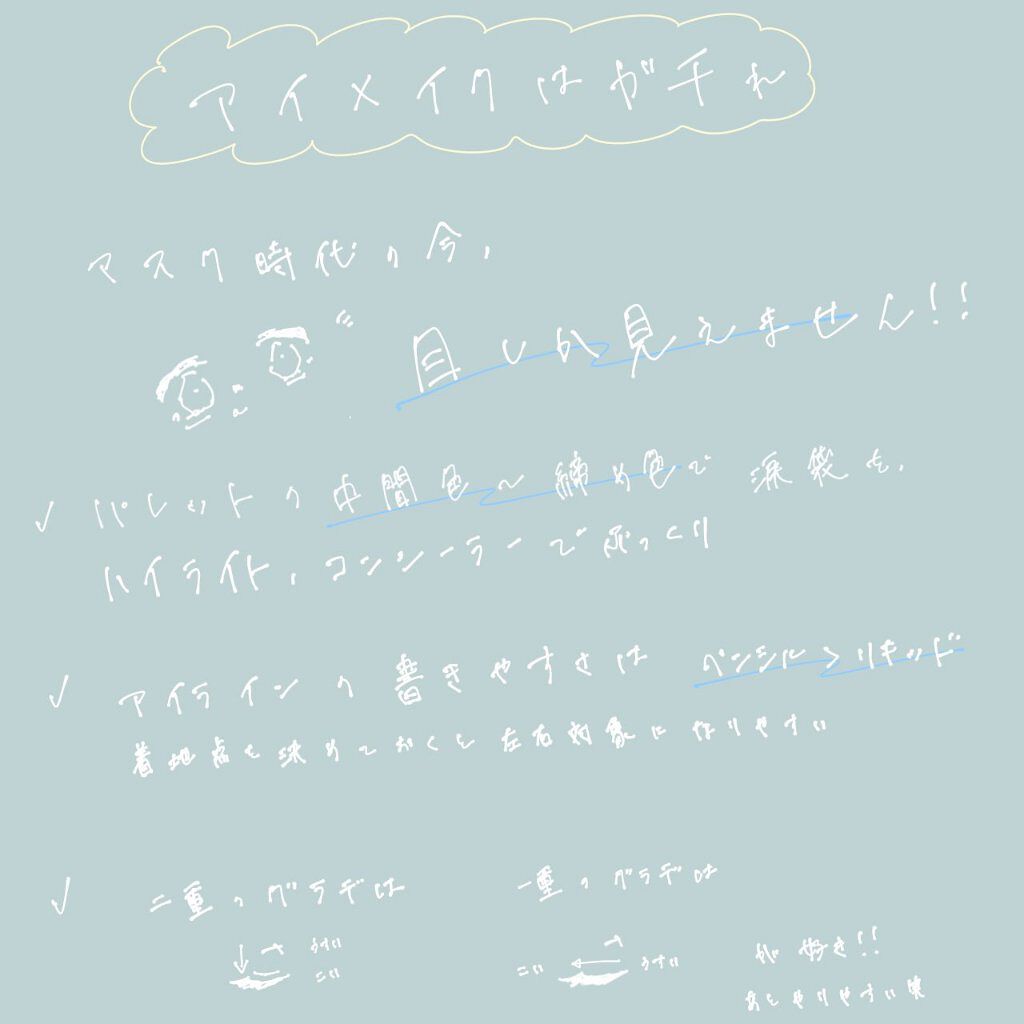 アイメイクはガチれ
マスク時代の今、
目しか見えません!!
✓ パレットの中間色〜締め色で涙袋を、
ハイライト、コンシーラーでぷっくり
✓ アイラインの書きやすさは ペンシル＞リキッド
着地点を決めておくと左右対象に作りやすい
✓ 二重のグラデは 一重のグラデは
うすい
こい
こい うすい
が好き!!
あとやりやすい笑